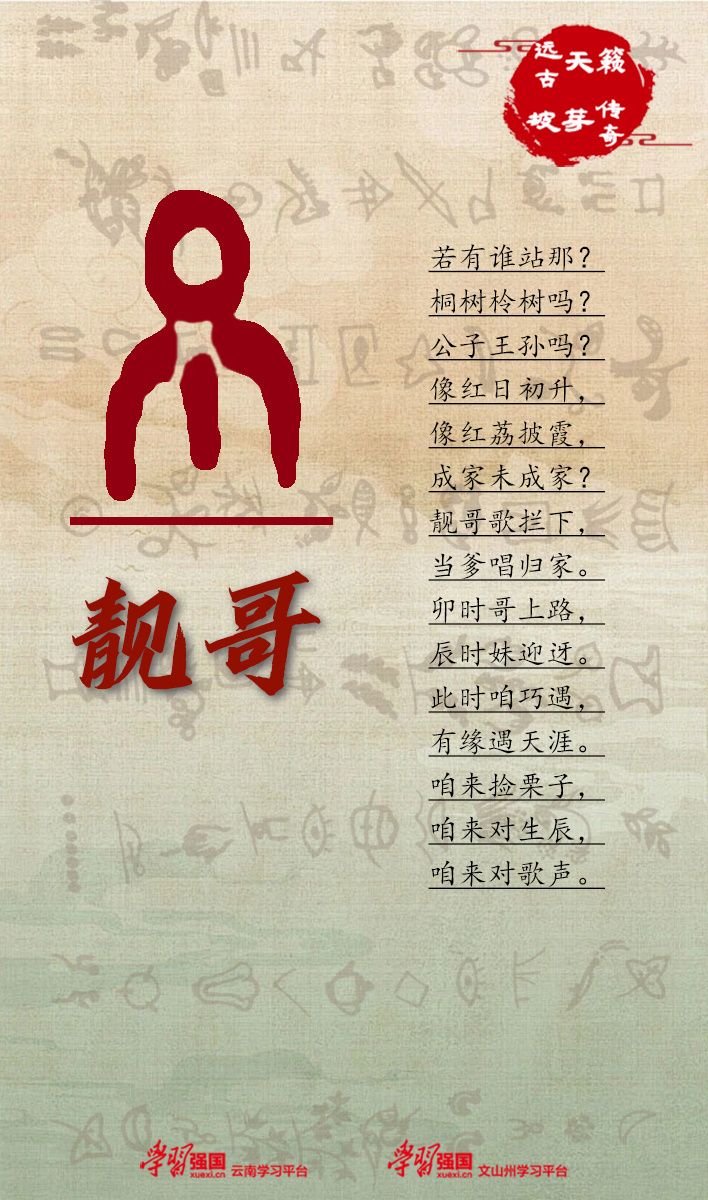 远古天籁
坡芽传奇
靓哥
若有谁站那？
桐树柃树吗？
公子王孙吗？
像红日初升，
像红荔披霞，
成家未成家？
靓哥歌拦下，
当爹唱归家。
卯时哥上路，
辰时妹迎迓。
此时咱巧遇，
有缘遇天涯。
咱来捡栗子，
咱来对生辰，
咱来对歌声。
学习强国 xuexi.cn 云南学习平台
学习强国 xuexi.cn 文山州学习平台